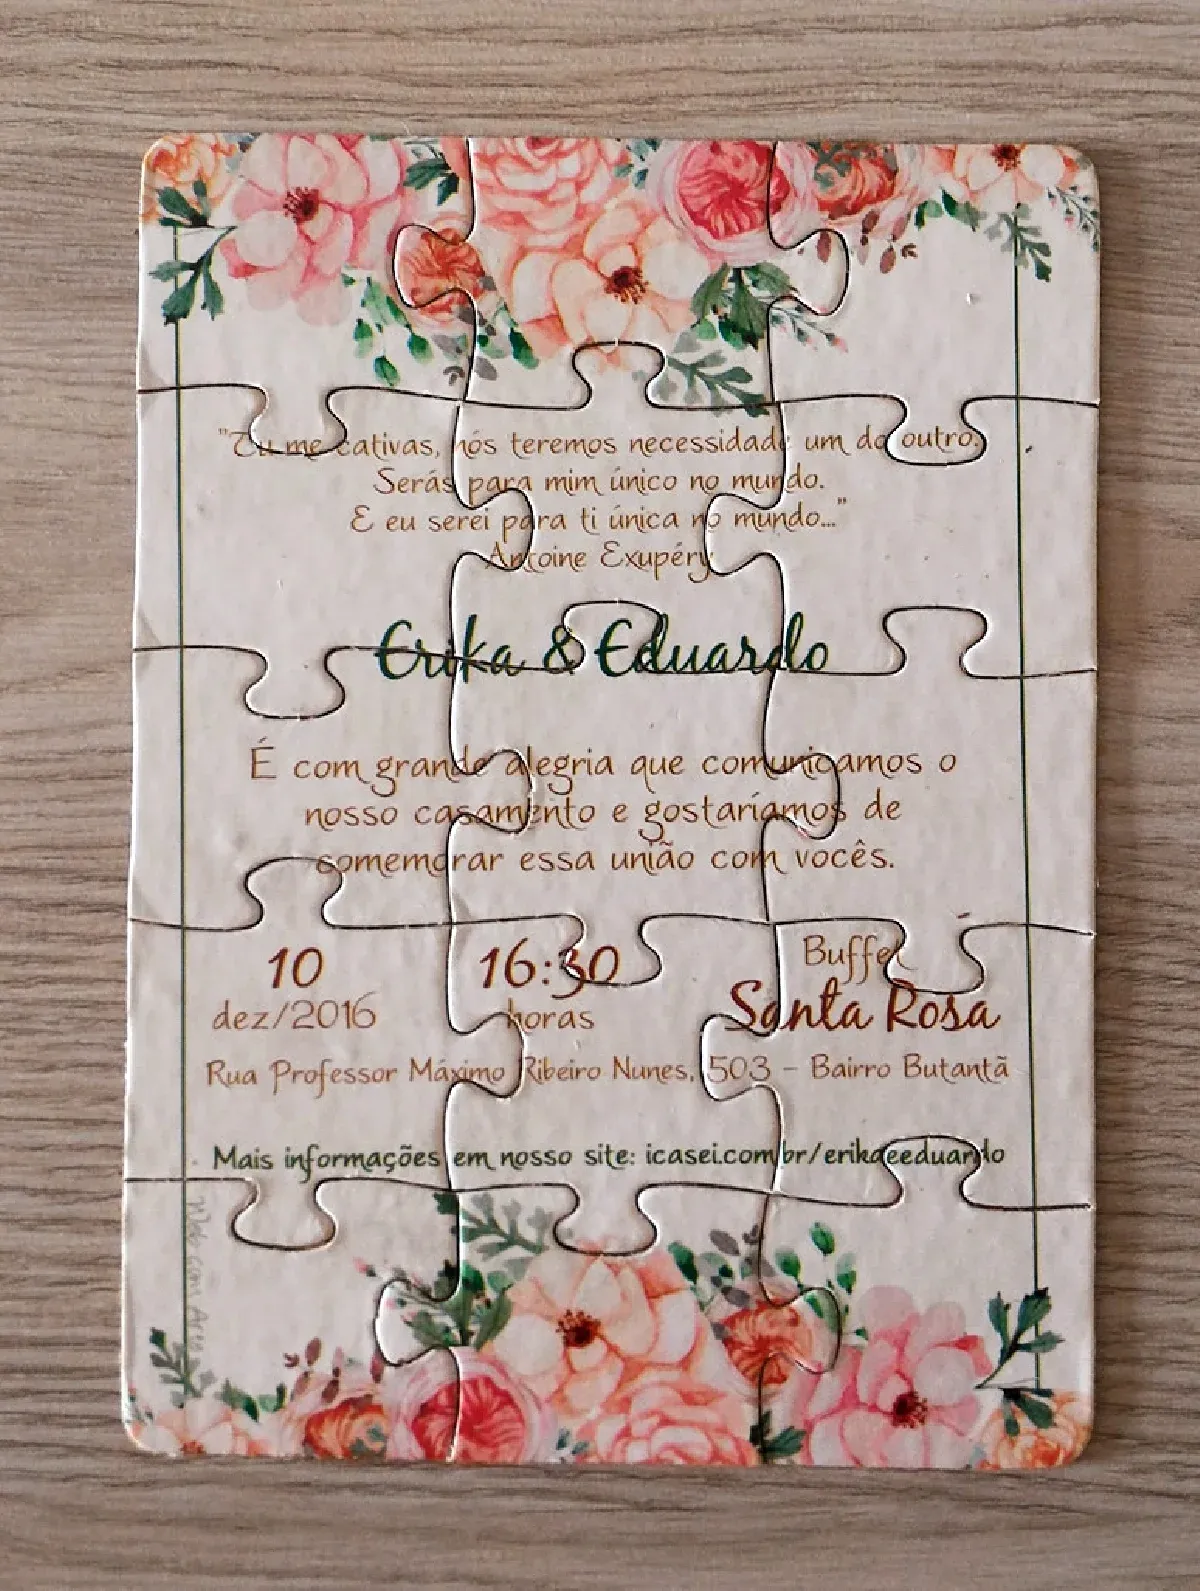 "Tu me cativas, nós teremos necessidade um do outro.
Serás para mim único no mundo.
E eu serei para ti única no mundo..."
Antoine Exupéry
Erika & Eduardo
É com grande alegria que comunicamos o
nosso casamento e gostaríamos de
comemorar essa união com vocês.
10
dez/2016
16:30
horas
Buffet
Santa Rosa
Rua Professor Máximo Ribeiro Nunes, 503 - Bairro Butantã
Mais informações em nosso site: icasei.com.br/erikaeeduardo